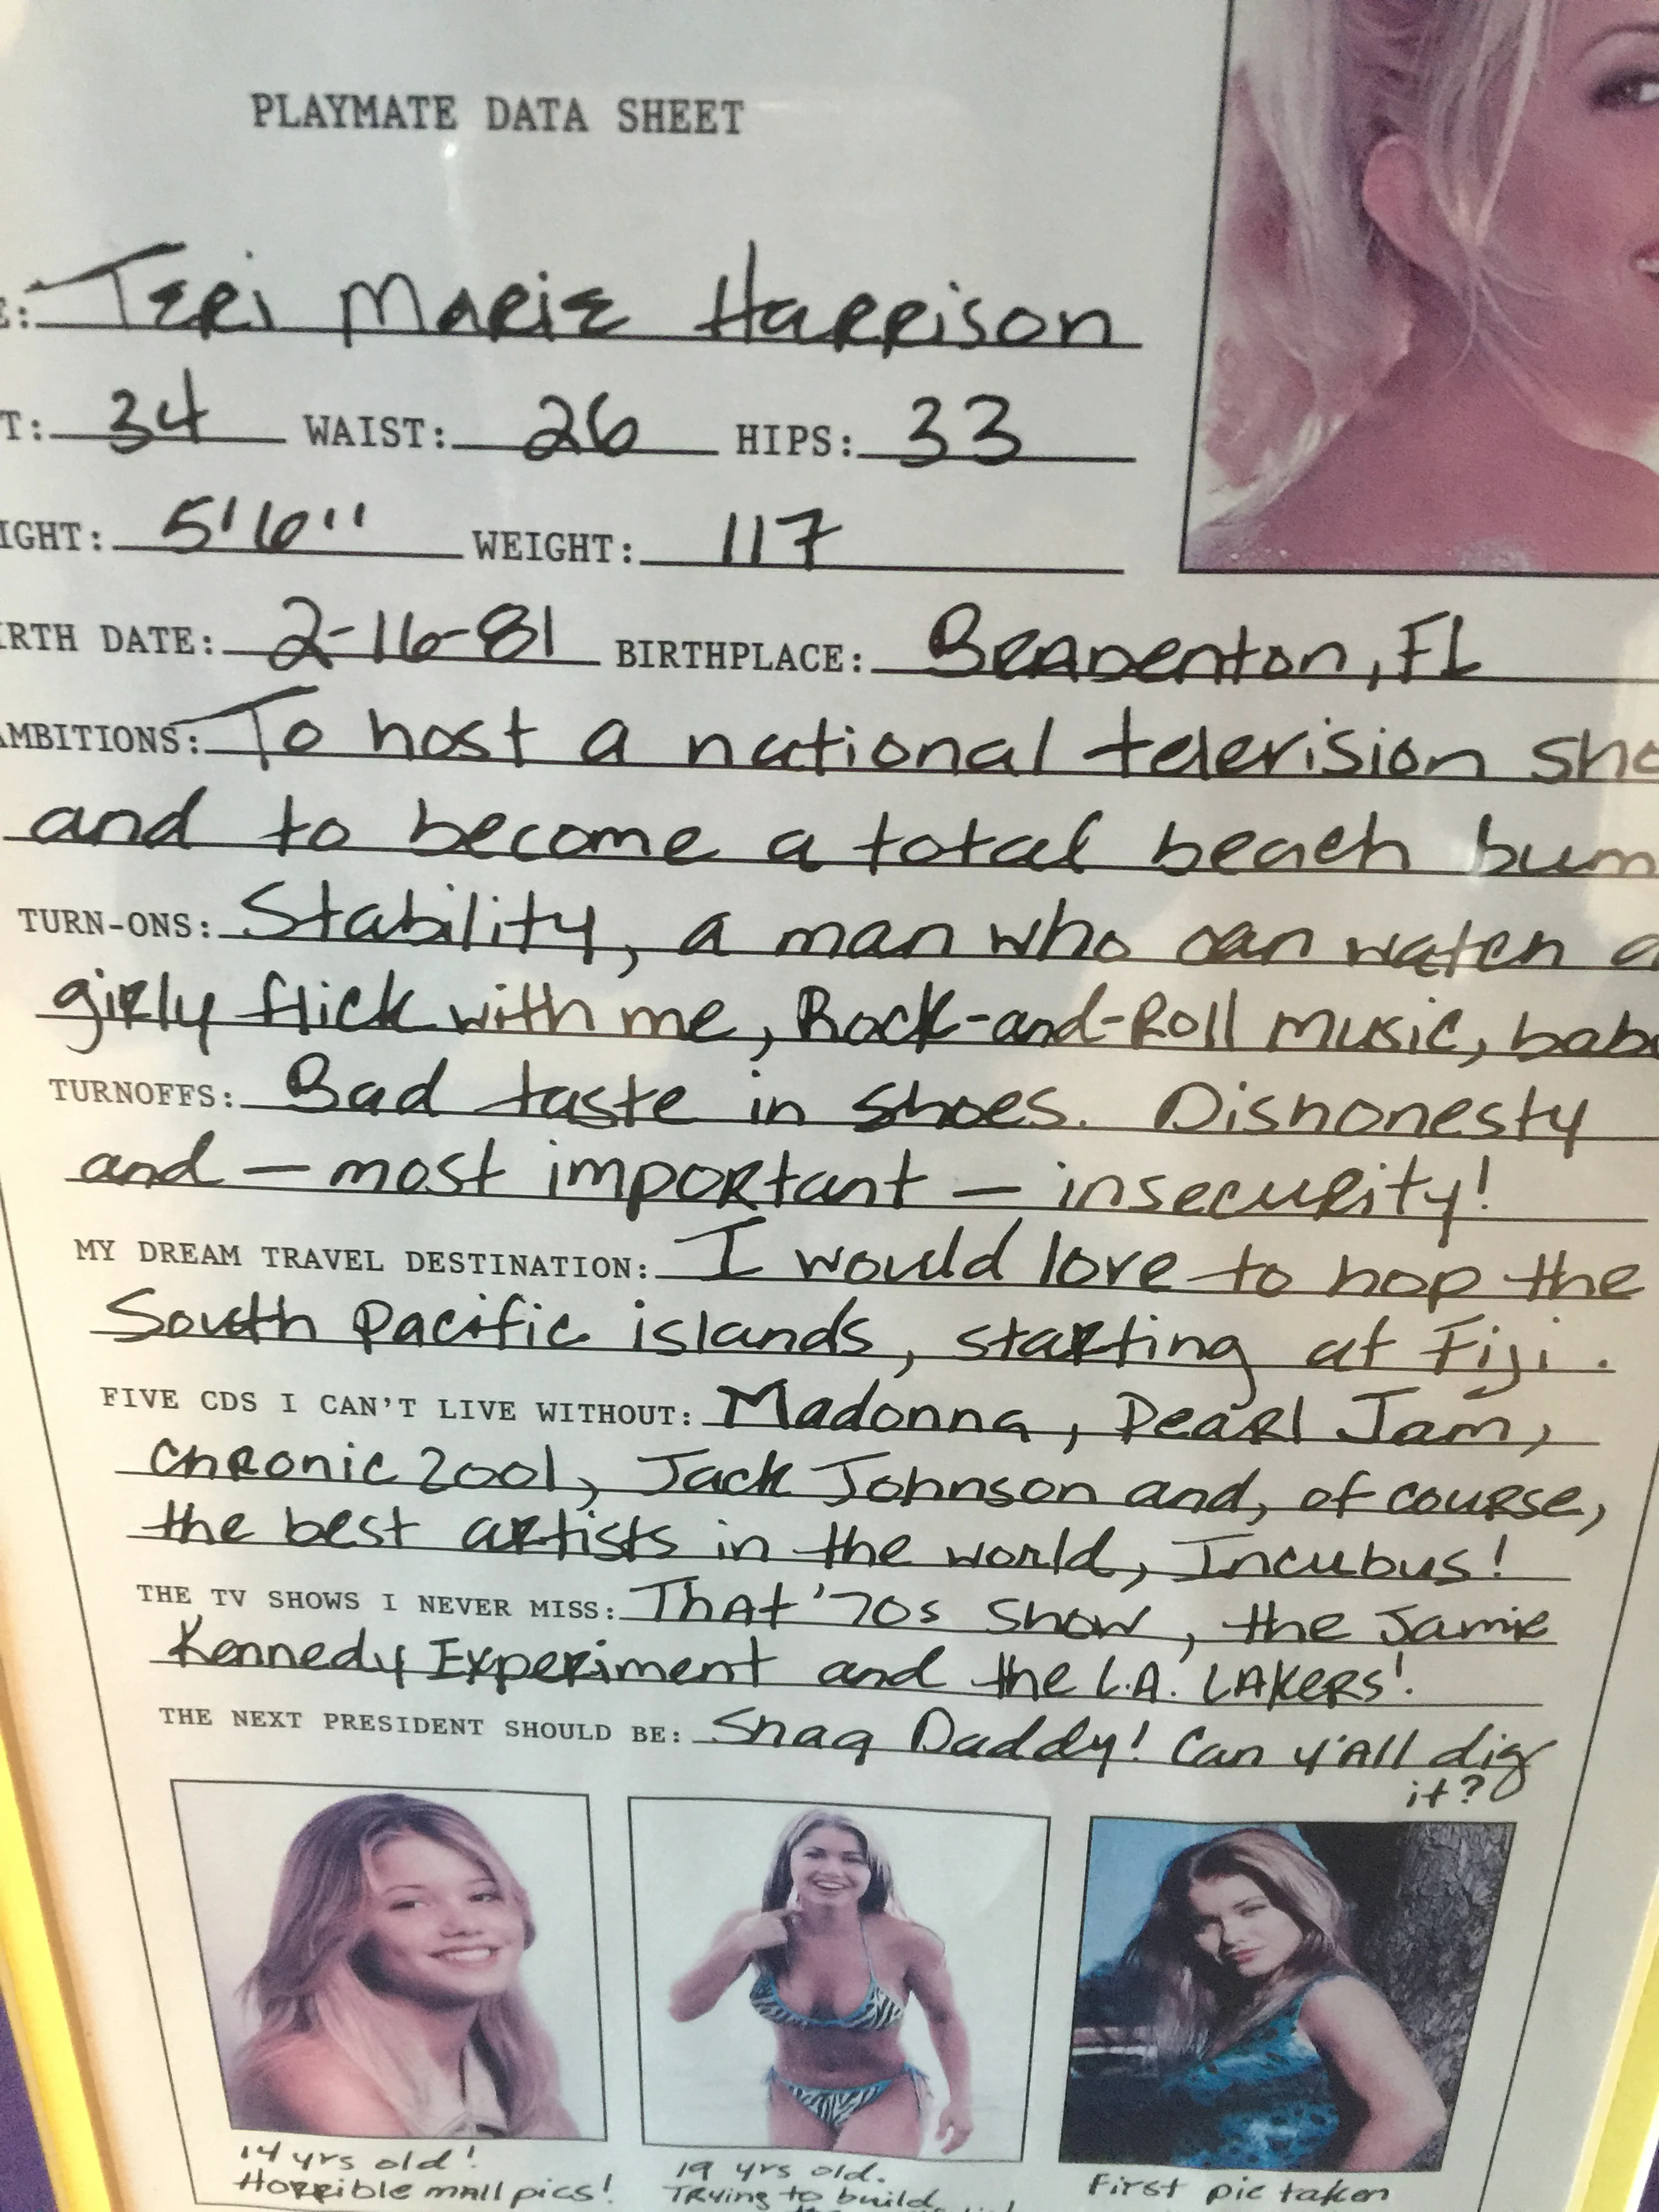 PLAYMATE DATA SHEET
E: Teri Marie Harrison
T: 34 WAIST: 26 HIPS: 33
IGHT: 5'6" WEIGHT: 117
IRTH DATE: 2-16-81 BIRTHPLACE: Bradenton, FL
AMBITIONS: To host a national television sho
and to become a total beach bum
TURN-ONS: Stability, a man who can watch a
girly flick with me, Rock-and-Roll music, bab
TURNOFFS: Bad taste in shoes. Dishonesty
and — most important — insecurity!
MY DREAM TRAVEL DESTINATION: I would love to hop the
South Pacific islands, starting at Fiji.
FIVE CDS I CAN'T LIVE WITHOUT: Madonna, Pearl Jam,
Chronic 2001, Jack Johnson and, of course,
the best artists in the world, Incubus!
THE TV SHOWS I NEVER MISS: That '70s Show, the Jamie
Kennedy Experiment and the L.A. LAKERS!
THE NEXT PRESIDENT SHOULD BE: Shaq Daddy! Can y'all dig
it?
14 yrs old!
Horrible mall pics!
19 yrs old.
Trying to build
First pic taken